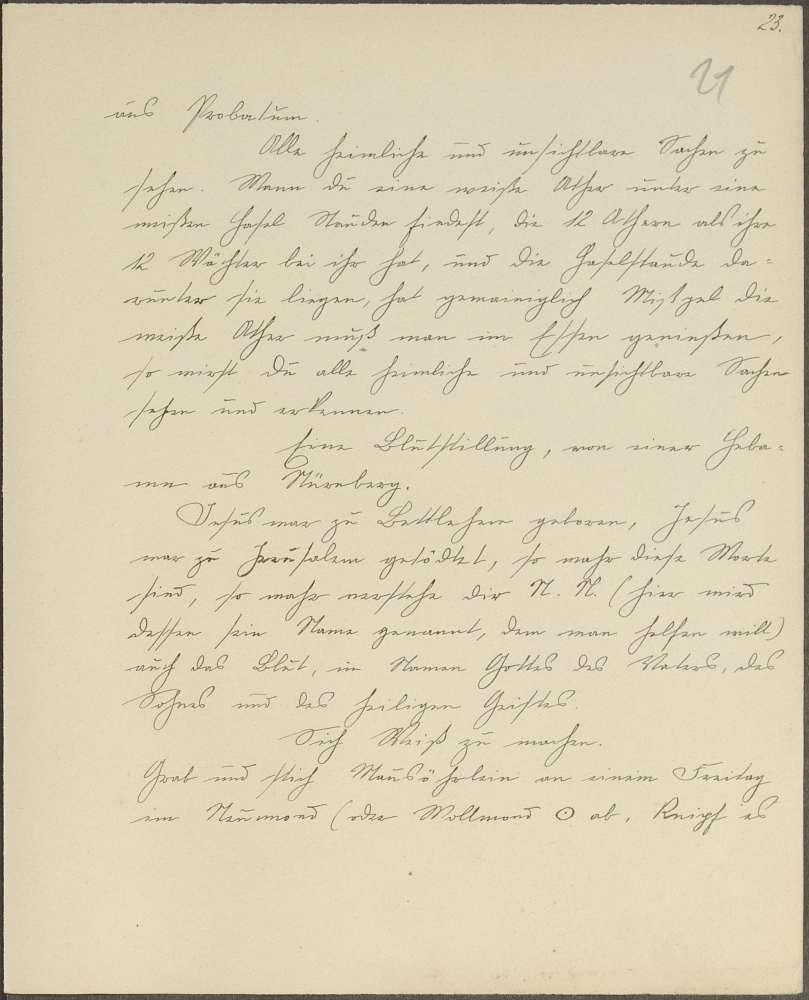 23.
21
aus Probatum.
Alle heimliche und unsichtbare Sachen zu
sehen. Wenn du eine weiße Other unter eine
weißen Hasel Stauden findest, die 12 Othern als ihre
12 Wächter bei ihr hat, und die Haselstaude da-
runter sie liegen, hat gemeiniglich Mistgel die
weiße Other muß man im Essen genießen,
so wirst du alle heimliche und unsichtbare Sachen
sehen und erkennen.
Eine Blutstillung, von einer Heba-
me aus Nürnberg.
Jesus war zu Bettlehem geboren, Jesus
war zu Jerusalem getödtet, so wahr diese Worte
sind, so wahr verstehe dir N. N. (hier wird
dessen sein Name genannt, dem man helfen will)
auch das Blut, im Namen Gottes des Vaters, des
Sohnes und des heiligen Geistes.
Sich Weiß zu machen.
Grab und stich Mausöhrlein an einem Freitag
im Neumond (oder Vollmond ⊙ ab, Knipf es